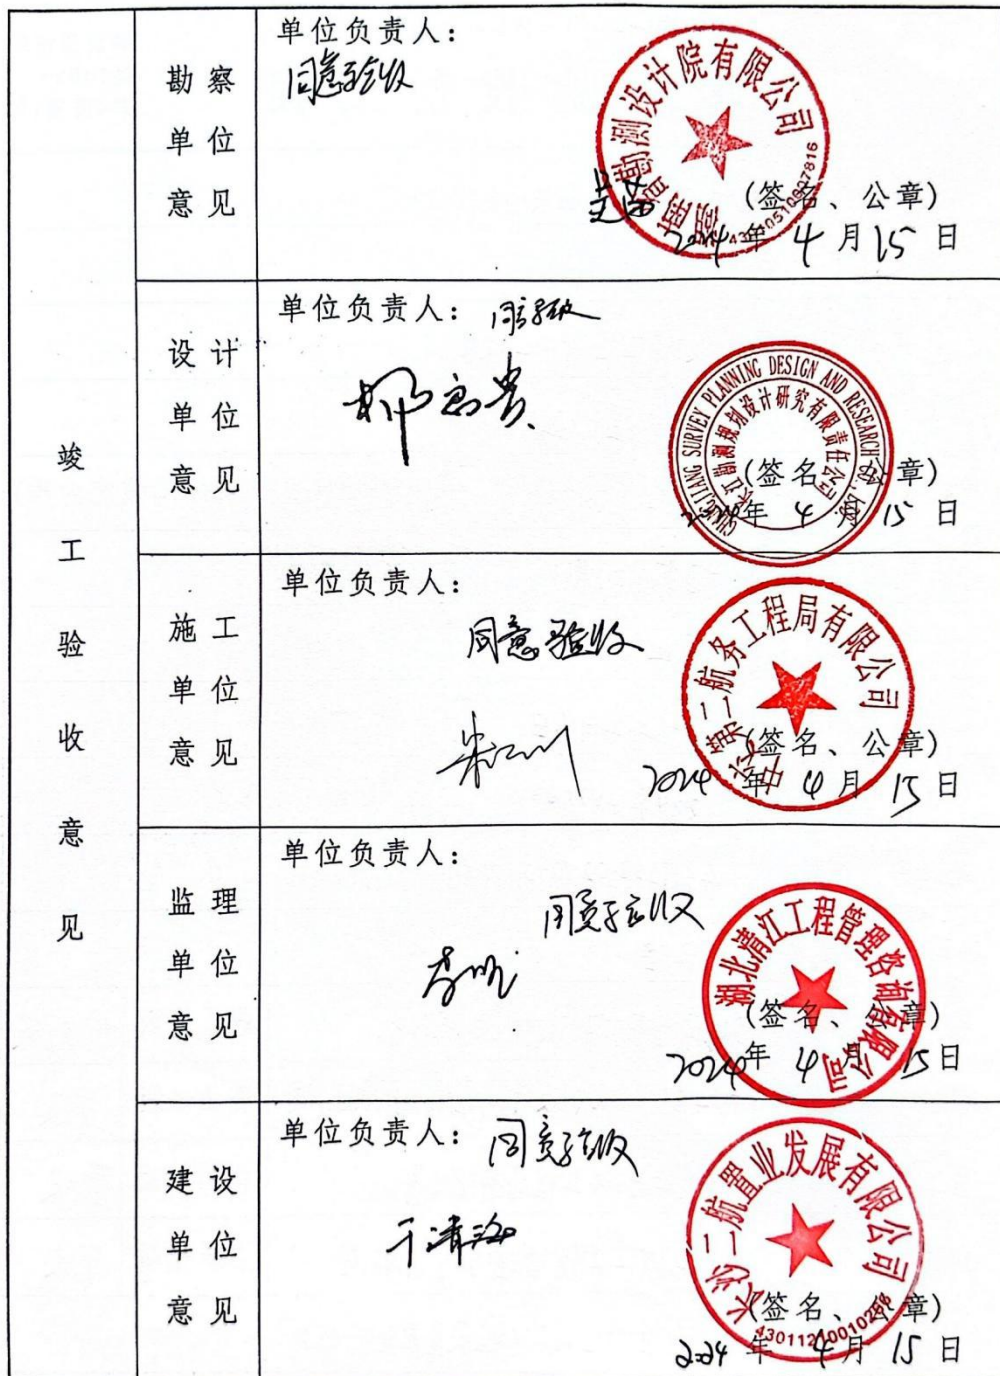 竣工验收意见
勘察单位意见
单位负责人：
同意验收
湖南省勘测设计院有限公司
(签名、公章)
2024年 4月15日
设计单位意见
单位负责人： 同意验收
CHANGJIANG SURVEY PLANNING DESIGN AND RESEARCH CO., LTD.
长江勘测规划设计研究有限责任公司
(签名、公章)
2024年 4月15日
施工单位意见
单位负责人：
同意验收
中交第二航务工程局有限公司
(签名、公章)
2024年 4月15日
监理单位意见
单位负责人：
同意验收
湖北清江工程管理咨询有限公司
(签名、公章)
2024年 4月15日
建设单位意见
单位负责人： 同意验收
于清海
长沙二航置业发展有限公司
(签名、公章)
2024年 4月15日